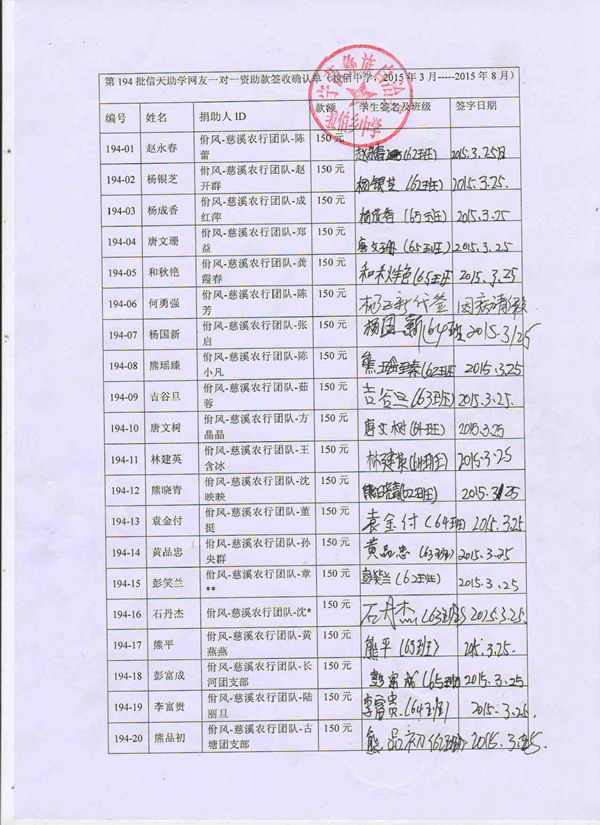 第 194 批信天助学网友一对一资助款签收确认单（拉伯中学，2015 年 3 月-----2015 年 8 月）
宁蒗彝族自治
拉伯乡中学
编号 姓名 捐助人 ID 款额 学生签名及班级 签字日期
194-01 赵永春 佾风-慈溪农行团队-陈蕾 150 元 赵永春 (62班) 2015.3.25日
194-02 杨银芝 佾风-慈溪农行团队-赵开群 150 元 杨银芝 (62班) 2015.3.25.
194-03 杨成香 佾风-慈溪农行团队-成红萍 150 元 杨成香 (65班) 2015.3.25
194-04 唐文珊 佾风-慈溪农行团队-郑益 150 元 唐文珊 (65班) 2015.3.25
194-05 和秋艳 佾风-慈溪农行团队-龚霞春 150 元 和秋艳 (65班) 2015.3.25
194-06 何勇强 佾风-慈溪农行团队-陈芳 150 元 代签 因病请假
194-07 杨国新 佾风-慈溪农行团队-张启 150 元 杨国新 (64班 2015.3/25
194-08 熊瑶臻 佾风-慈溪农行团队-陈小凡 150 元 熊瑶臻 (62班 2015.3.25
194-09 吉谷旦 佾风-慈溪农行团队-茹蓉 150 元 吉谷旦 (63班) 2015.3.25.
194-10 唐文树 佾风-慈溪农行团队-方晶晶 150 元 唐文树 (64班) 2015.3.25
194-11 林建英 佾风-慈溪农行团队-王含冰 150 元 林建英 (64班) 2015.3.25
194-12 熊晓青 佾风-慈溪农行团队-沈映映 150 元 熊晓青 (62班) 2015.3/25
194-13 袁金付 佾风-慈溪农行团队-董挺 150 元 袁金付 (64班 2015.3.25
194-14 黄品忠 佾风-慈溪农行团队-孙央群 150 元 黄品忠 (63班) 2015.3.25
194-15 彭笑兰 佾风-慈溪农行团队-章** 150 元 彭笑兰 (62班) 2015.3.25
194-16 石丹杰 佾风-慈溪农行团队-沈* 150 元 石丹杰 (63班) 2015.3.25.
194-17 熊平 佾风-慈溪农行团队-黄燕燕 150 元 熊平 (63班) 2015.3.25.
194-18 彭富成 佾风-慈溪农行团队-长河团支部 150 元 彭富成 (65班) 2015.3.25
194-19 李富贵 佾风-慈溪农行团队-陆丽旦 150 元 李富贵 (64班) 2015.3.25.
194-20 熊品初 佾风-慈溪农行团队-古塘团支部 150 元 熊品初 (62班) 2015.3.25.